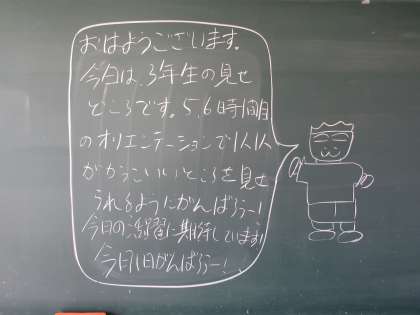 おはようございます。
今日は、3年生の見せ
どころです。5,6時間目
のオリエンテーションで1人1人
がかっこいいところを見せ
られるようにがんばろうー!
今日の活躍に期待しています!!
今日1日がんばろうー!